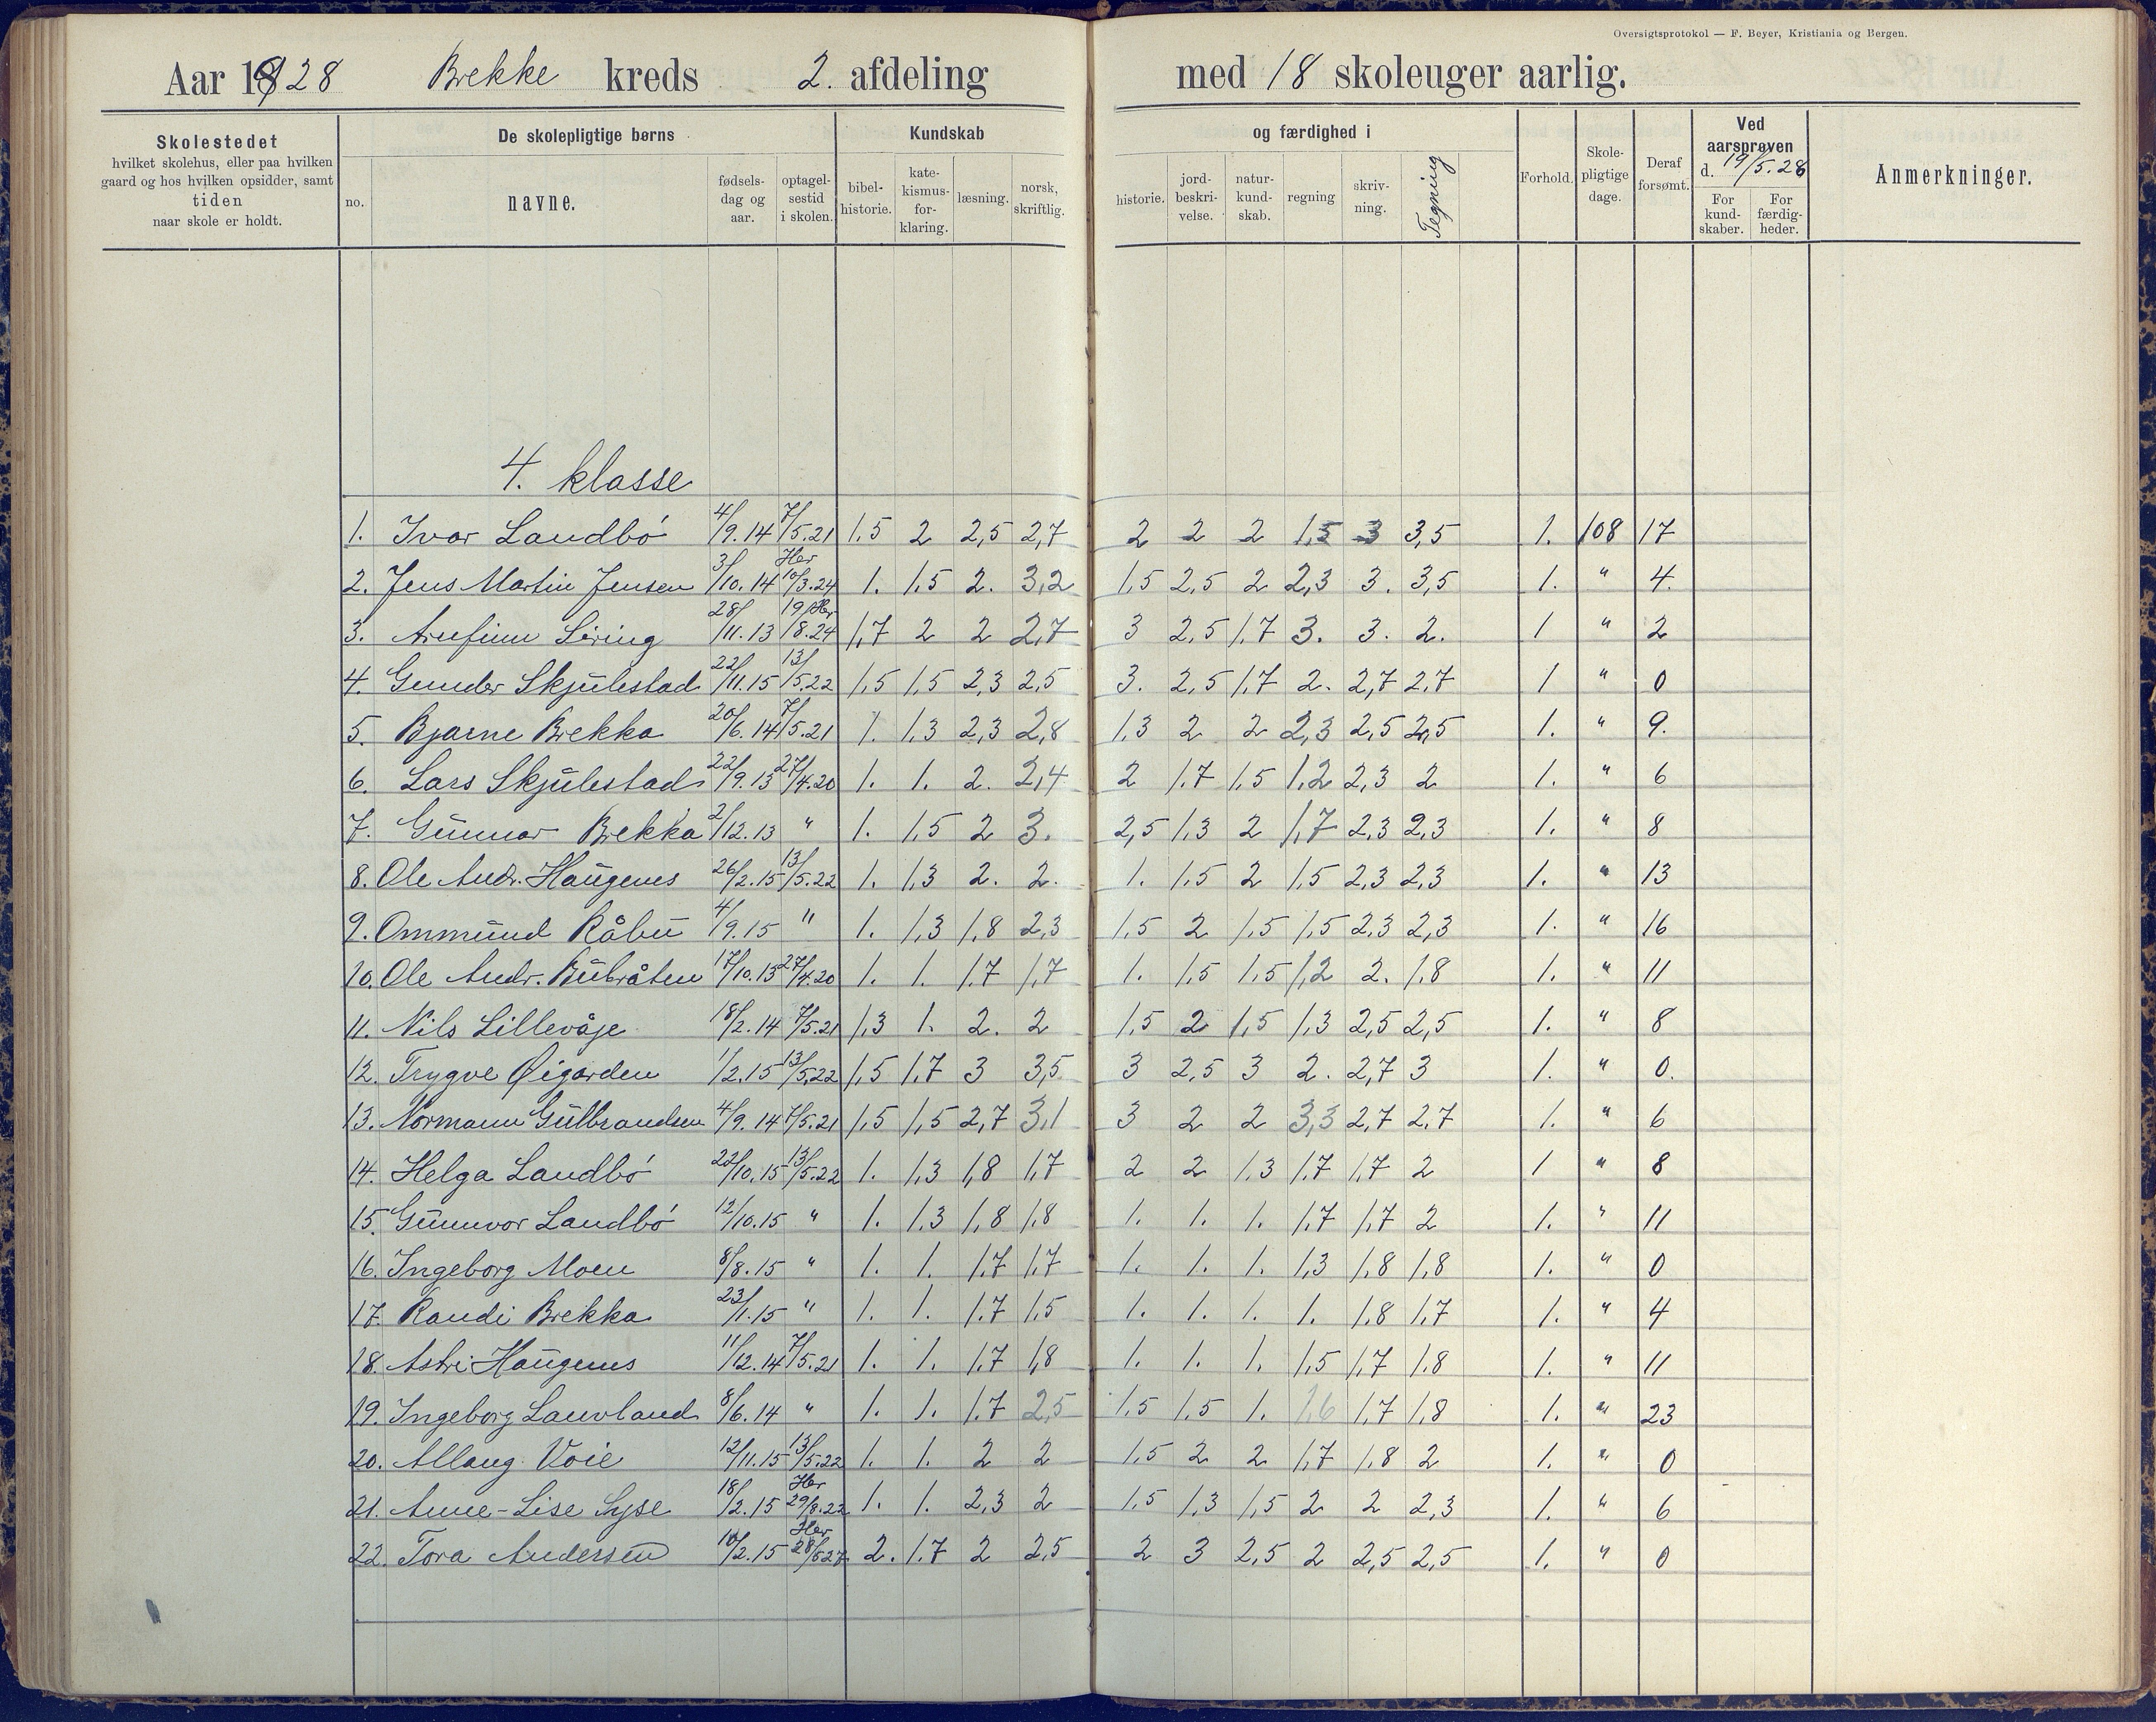 Oversigtsprotokol — F. Beyer, Kristiania og Bergen.
Aar 1928 Brekke kreds 2. afdeling med 18 skoleuger aarlig.
Skolestedet
hvilket skolehus, eller paa hvilken
gaard og hos hvilken opsidder, samt
tiden
naar skole er holdt.
De skolepligtige børns
no.
navne.
fødsels-
dag og
aar.
optagel-
sestid
i skolen.
Kundskab
bibel-
historie.
kate-
kismus-
for-
klaring.
læsning.
norsk,
skriftlig.
og færdighed i
historie.
jord-
beskri-
velse.
natur-
kund-
skab.
regning
skriv-
ning.
Tegning
Forhold.
Skole-
pligtige
dage.
Deraf
forsømt.
Ved
aarsprøven
d. 19/5.28
For
kund-
skaber.
For
færdig-
heder.
Anmerkninger.
4. klasse
1. Ivar Landbö 4/9.14 7/5.21 1,5 2 2,5 2,7 2 2 2 1,5 3 3,5 1. 108 17
2. Jens Martin Jensen 3/10.14 Her 10/3.24 1. 1,5 2. 3,2 1,5 2,5 2 2,3 3. 3,5 1. " 4.
3. Arnfinn Sering 28/11.13 19/8.24 Her 1,7 2 2 2,7 3 2,5 1,7 3. 3. 2. 1 " 2
4. Gunder Skjulestad 22/11.15 13/5.22 1,5 1,5 2,3 2,5 3. 2,5 1,7 2. 2,7 2,7 1 " 0
5. Bjarne Brekka 20/6.14 7/5.21 1. 1,3 2,3 2,8 1,3 2 2 2,3 2,5 2,5 1. " 9.
6. Lars Skjulestad 22/9.13 27/4.20 1. 1. 2. 2,4 2 1,7 1,5 1,2 2,3 2 1. " 6
7. Gunnar Brekka 2/12.13 " 1. 1,5 2 3. 2,5 1,3 2 1,7 2,3 2,3 1. " 8
8. Ole Andr. Haugenes 26/2.15 13/5.22 1. 1,3 2. 2. 1. 1,5 2 1,5 2,3 2,3 1. " 13
9. Ommund Råbu 4/9.15 " 1. 1,3 1,8 2,3 1,5 2 1,5 1,5 2,3 2,3 1. " 16
10. Ole Andr. Bubråten 17/10.13 27/4.20 1. 1. 1,7 1,7 1. 1,5 1,5 1,2 2. 1,8 1. " 11
11. Nils Lillevåje 18/2.14 7/5.21 1,3 1. 2. 2 1,5 2 1,5 1,3 2,5 2,5 1. " 8
12. Trygve Øigarden 1/2.15 13/5.22 1,5 1,7 3 3,5 3 2,5 3 2. 2,7 3 1. " 0.
13. Normann Gulbrandsen 4/9.14 7/5.21 1,5 1,5 2,7 3,1 3 2 2 3,3 2,7 2,7 1. " 6
14. Helga Landbö 22/10.15 13/5.22 1. 1,3 1,8 1,7 2 2 1,3 1,7 1,7 2 1 " 8
15. Gunnvor Landbö 12/10.15 " 1. 1,3 1,8 1,8 1. 1. 1. 1,7 1,7 2 1. " 11
16. Ingeborg Moen 8/8.15 " 1. 1. 1,7 1,7 1. 1. 1. 1,3 1,8 1,8 1. " 0
17. Randi Brekka 23/1.15 " 1. 1. 1,7 1,5 1. 1. 1. 1. 1,8 1,7 1. " 4
18. Astri Haugenes 11/12.14 7/5.21 1. 1. 1,7 1,8 1. 1. 1. 1,5 1,7 1,8 1. " 11
19. Ingeborg Lauvland 8/6.14 " 1. 1. 1,7 2,5 1,5 1,5 1. 1,6 1,7 1,8 1. " 23
20. Allaug Voie 12/11.15 13/5.22 1. 1. 2 2 1,5 2 2 1,7 1,8 2 1. " 0
21. Anne-Lise Syse 18/2.15 Her 29/8.22 1. 1. 2,3 2 1,5 1,3 1,5 2 2 2,3 1. " 6
22. Tora Andersen 10/2.15 Her 28/6.27 2. 1,7 2 2,5 2 3 2,5 2 2,5 2,5 1. " 0